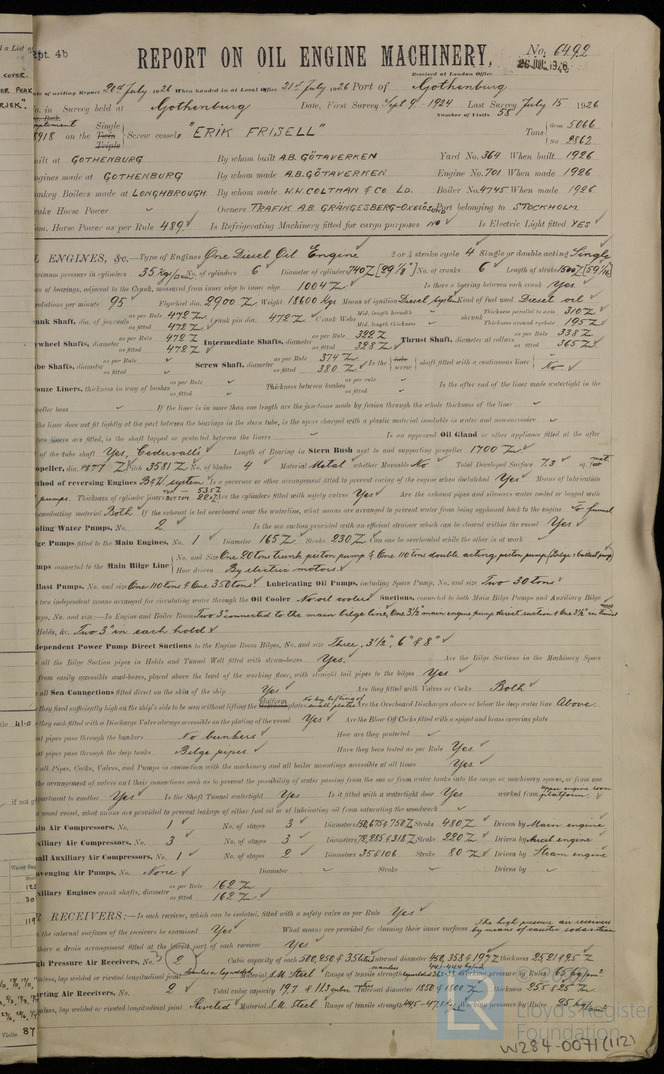 Rpt. 4b
REPORT ON OIL ENGINE MACHINERY.
No. 6492
Received at London Office 26 JUL 1926
Date of writing Report 20th July 1926 When handed in at Local Office 21st July 1926 Port of Gothenburg
No. in Survey held at Gothenburg Date, First Survey Sept 9 1924 Last Survey July 15 1926
Number of Visits 58
on the Single Twin Triple Screw vessel "ERIK FRISELL" Tons Gross 5066 Net 2862
Built at GOTHENBURG By whom built A.B. GÖTAVERKEN Yard No. 364 When built 1926
Engines made at GOTHENBURG By whom made A.B. GÖTAVERKEN Engine No. 701 When made 1926
Donkey Boilers made at LONGHBROUGH By whom made W.W. COLTMAN & CO LD. Boiler No. 4745 When made 1926
Brake Horse Power Owners TRAFIK A.B. GRÄNGESBERG-OXELÖSUND Port belonging to STOCKHOLM
Nom. Horse Power as per Rule 489 Is Refrigerating Machinery fitted for cargo purposes NO Is Electric Light fitted YES
OIL ENGINES, &c.—Type of Engines One Diesel Oil Engine 2 or 4 stroke cycle 4 Single or double acting Single
Maximum pressure in cylinders 35 kg/ No. of cylinders 6 Diameter of cylinders 740 [29 1/8"] No. of cranks 6 Length of stroke 1500
of bearings, adjacent to the Crank, measured from inner edge to inner edge 1004 Is there a bearing between each crank Yes
Revolutions per minute 95 Flywheel dia. 2900 Weight 18600 kgs Means of ignition Diesel system Kind of fuel used Diesel oil
Crank Shaft, dia. of journals as per Rule 472 as fitted 472 Crank pin dia. 472 Crank Webs Mid. length breadth Mid. length thickness shrunk Thickness parallel to axis 310 Thickness around eyehole 195
Flywheel Shafts, diameter as per Rule 472 as fitted 472 Intermediate Shafts, diameter as per Rule 322 as fitted 328 Thrust Shaft, diameter at collars as per Rule 338 as fitted 365
Tube Shafts, diameter as per Rule as fitted Screw Shaft, diameter as per Rule 374 as fitted 380 Is the tube screw shaft fitted with a continuous liner No
Bronze Liners, thickness in way of bushes as per Rule as fitted Thickness between bushes as per rule as fitted Is the after end of the liner made watertight in the
propeller boss If the liner is in more than one length are the junctions made by fusion through the whole thickness of the liner
the liner does not fit tightly at the part between the bearings in the stern tube, is the space charged with a plastic material insoluble in water and non-corrosive
two liners are fitted, is the shaft lapped or protected between the liners Is an approved Oil Gland or other appliance fitted at the after
of the tube shaft Yes, Cedervall's Length of Bearing in Stern Bush next to and supporting propeller 1700
Propeller, dia. Pitch 3581 No. of blades 4 Material Metal whether Moveable No Total Developed Surface 7.3 sq. met
Method of reversing Engines B&W system Is a governor or other arrangement fitted to prevent racing of the engine when declutched Yes Means of lubrication
pumps. Thickness of cylinder liners Are the cylinders fitted with safety valves Yes Are the exhaust pipes and silencers water cooled or lagged with
conducting material Both If the exhaust is led overboard near the waterline, what means are arranged to prevent water from being syphoned back to the engine To funnel
Cooling Water Pumps, No. 2 Is the sea suction provided with an efficient strainer which can be cleared within the vessel Yes
Bilge Pumps fitted to the Main Engines, No. 1 Diameter 165 Stroke 230 Can one be overhauled while the other is at work
Pumps connected to the Main Bilge Line No. and Size One 20 tons trunk piston pump & One 110 tons double acting, piston pump (Bilge & ballast pump)
How driven By electric motors
Ballast Pumps, No. and size One 110 tons & One 350 tons Lubricating Oil Pumps, including Spare Pump, No. and size Two 30 tons
two independent means arranged for circulating water through the Oil Cooler No oil cooler Suctions, connected to both Main Bilge Pumps and Auxiliary Bilge
Pumps, No. and size:—In Engine and Boiler Room Two 3" connected to the main bilge line, One 3½" main engine pump direct suction & One 3½" in tunnel
Holds, &c. Two 3" in each hold
Independent Power Pump Direct Suctions to the Engine Room Bilges, No. and size Three, 3½", 6" & 8"
all the Bilge Suction pipes in Holds and Tunnel Well fitted with strum-boxes Yes. Are the Bilge Suctions in the Machinery Space
from easily accessible mud-boxes, placed above the level of the working floor, with straight tail pipes to the bilges Yes
all Sea Connections fitted direct on the skin of the ship Yes Are they fitted with Valves or Cocks Both
they fixed sufficiently high on the ship's side to be seen without lifting the platform plates No by lifting of small plates Are the Overboard Discharges above or below the deep water line Above
they each fitted with a Discharge Valve always accessible on the plating of the vessel Yes Are the Blow Off Cocks fitted with a spigot and brass covering plate
What pipes pass through the bunkers No bunkers How are they protected
What pipes pass through the deep tanks Bilge pipes Have they been tested as per Rule Yes
all Pipes, Cocks, Valves, and Pumps in connection with the machinery and all boiler mountings accessible at all times Yes
the arrangement of valves and their connections such as to prevent the possibility of water passing from the sea or from water tanks into the cargo or machinery spaces, or from one
compartment to another Yes Is the Shaft Tunnel watertight Yes Is it fitted with a watertight door Yes worked from Upper engine room platform
wood vessel, what means are provided to prevent leakage of either fuel oil or of lubricating oil from saturating the woodwork
Main Air Compressors, No. 1 No. of stages 3 Diameters 150, 675 & 750 Stroke 480 Driven by Main engine
Auxiliary Air Compressors, No. 3 No. of stages 3 Diameters 78, 285 & 318 Stroke 220 Driven by Auxl. engine
Small Auxiliary Air Compressors, No. 1 No. of stages 2 Diameters 35 & 106 Stroke 80 Driven by Steam engine
Scavenging Air Pumps, No. None Diameter Stroke Driven by
Auxiliary Engines crank shafts, diameter as per Rule 162 as fitted 162
AIR RECEIVERS:—Is each receiver, which can be isolated, fitted with a safety valve as per Rule Yes
the internal surfaces of the receivers be examined Yes What means are provided for cleaning their inner surfaces The high pressure air receivers by means of caustic soda & steam
there a drain arrangement fitted at the lowest part of each receiver Yes
High Pressure Air Receivers, No. 2 Cubic capacity of each 500, 250 & 35 litres Internal diameter 450, 358 & 197 thickness
Seamless, lap welded or riveted longitudinal joint Material S.M. Steel Range of tensile strength Working pressure by Rules 65 kg/cm²
Starting Air Receivers, No. 2 Total cubic capacity 19.7 & 11.3 Internal diameter 1850 & 1500 thickness 25.5 & 25
Seamless, lap welded or riveted longitudinal joint Riveted Material S.M. Steel Range of tensile strength 44.5-47.1 Working pressure by Rules 25 kg/cm²
Lloyd's Register Foundation
W284-0071(1/2)
Visits 87